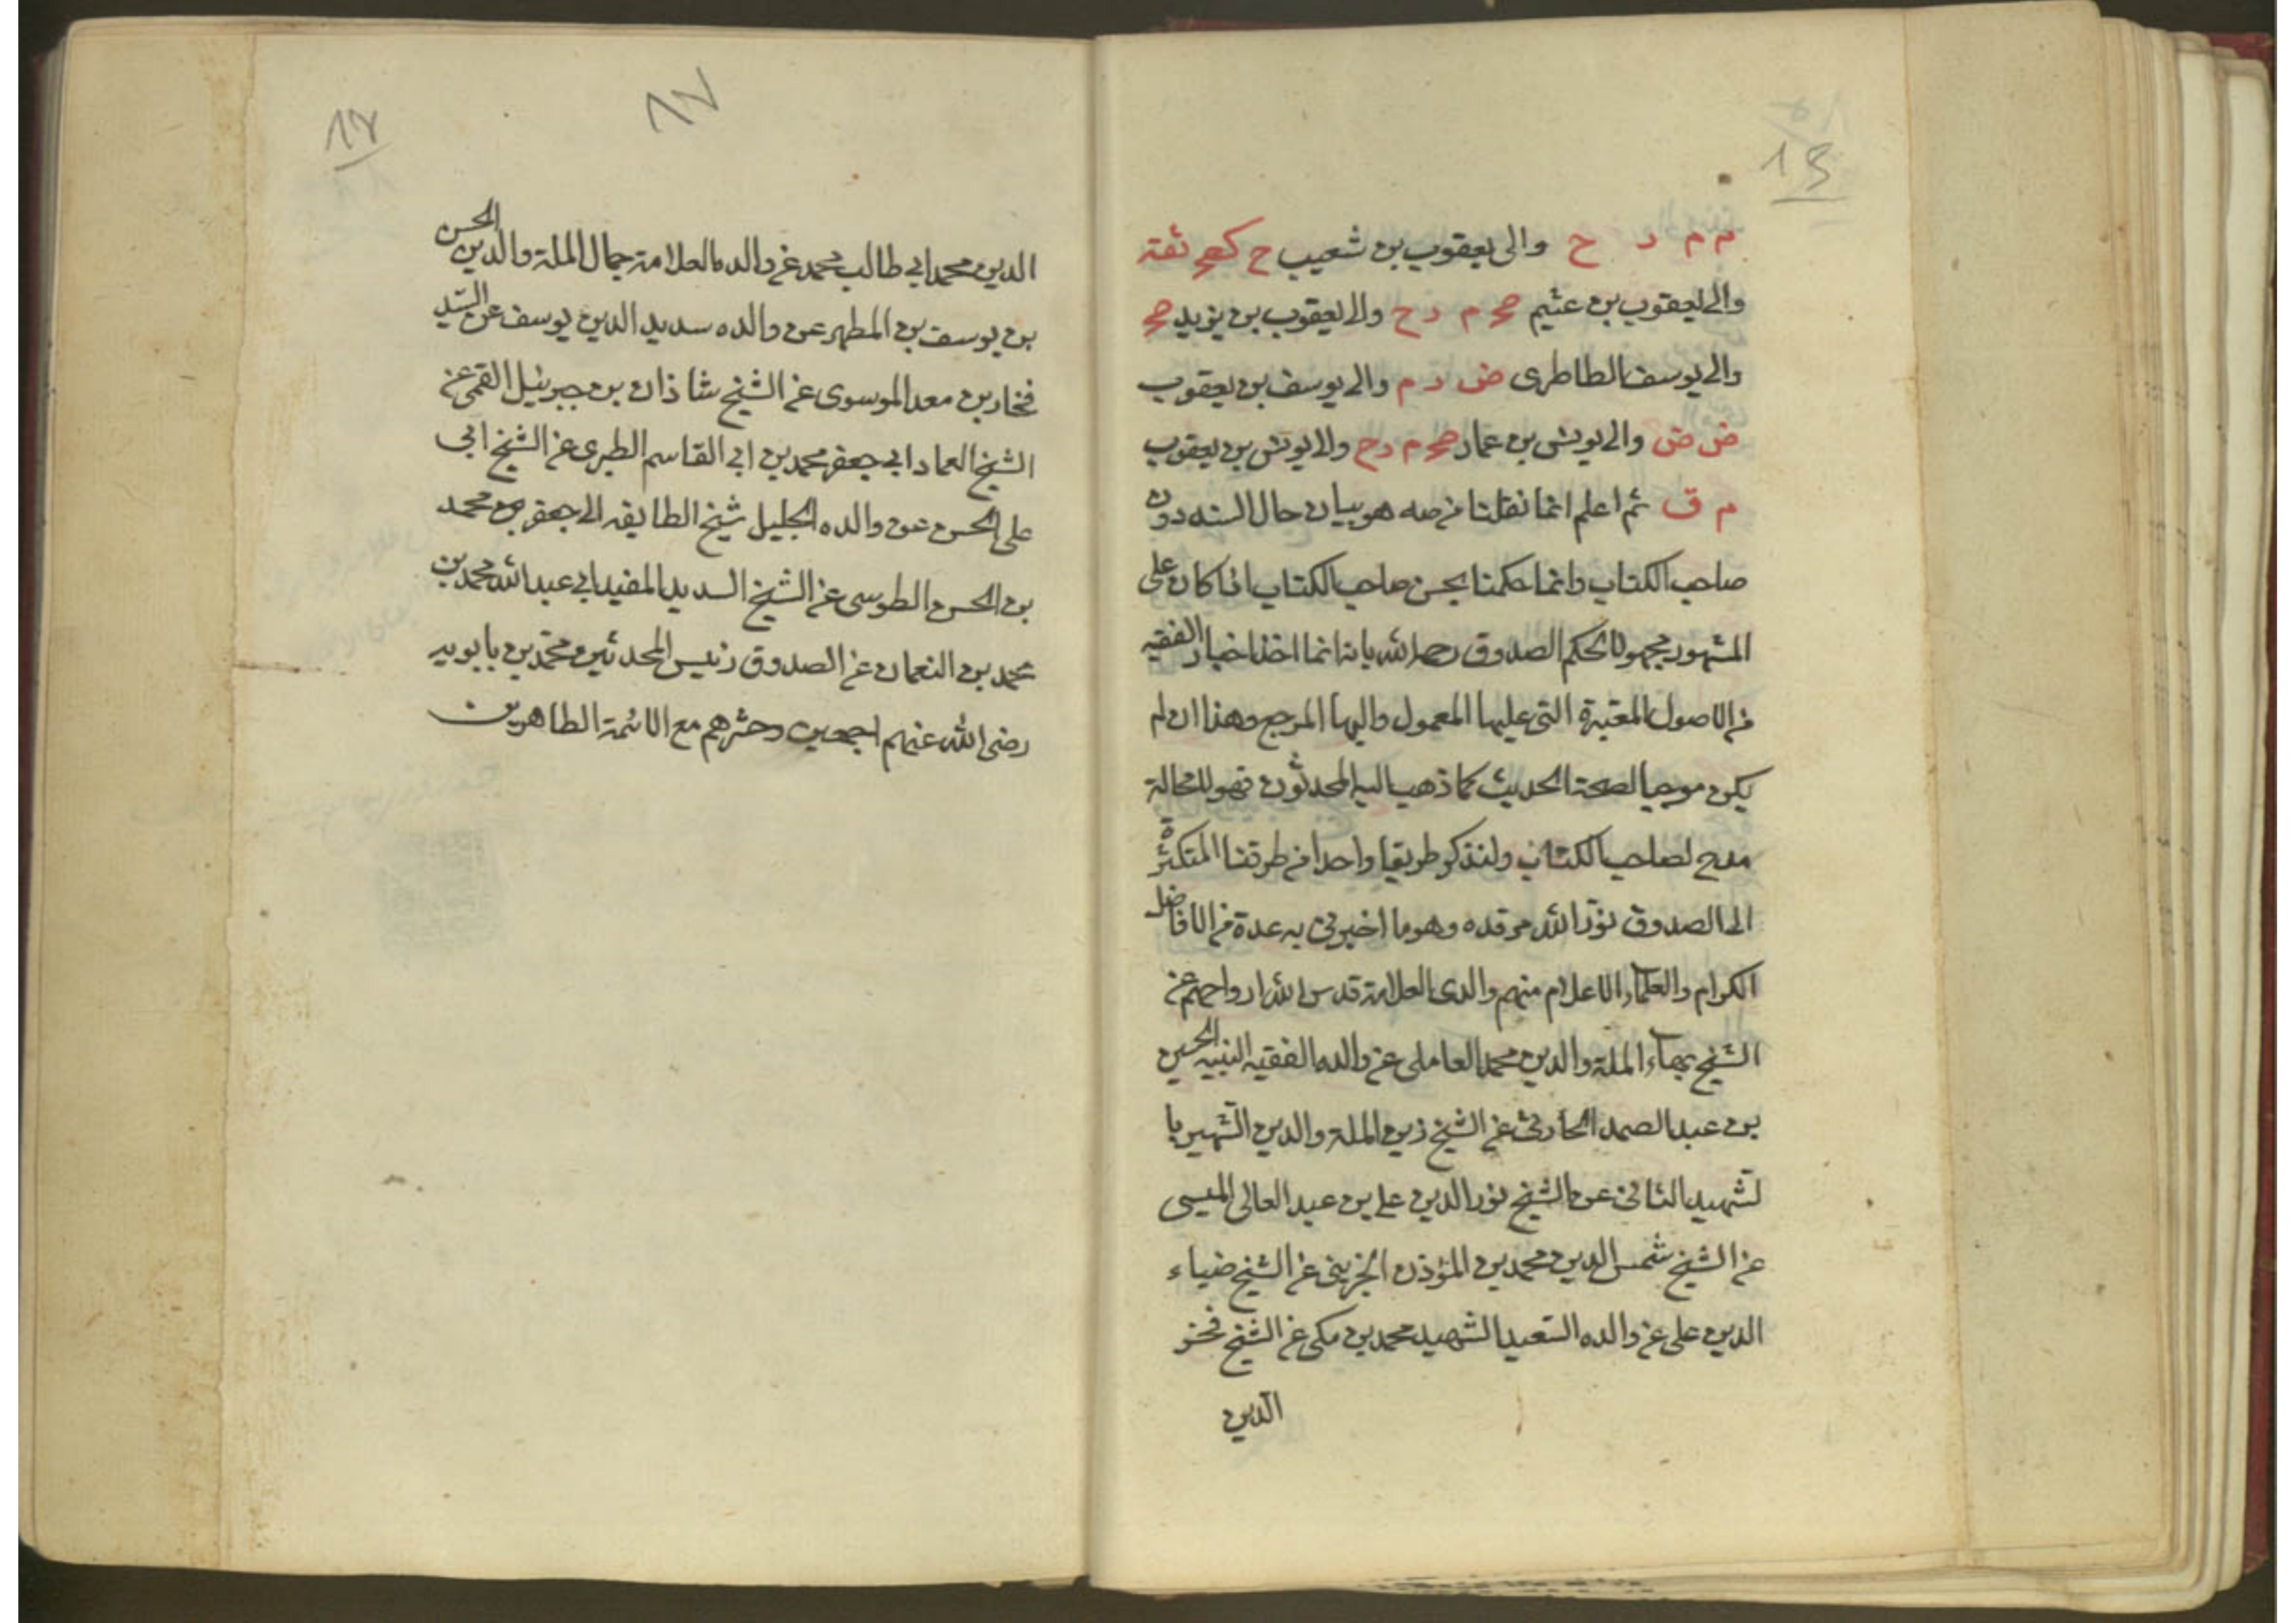 م م د ح والى يعقوب بن شعيب ح كصح ثقة
والى يعقوب بن عثيم صح م د ح والى يعقوب بن يزيد صح
والى يوسف الطاطرى ض د م والى يوسف بن يعقوب
ض ض والى يونس بن عمار صح م د ح والى يونس بن يعقوب
م ق ثم اعلم انما نقلنا من صه هو بيان حال السند دون
صاحب الكتاب وانما حكمنا بحسن صاحب الكتاب اذا كان على
المشهور مجهولا لحكم الصدوق رحمه الله بانه انما اخذ اخبار الفقيه
من الاصول المعتبرة التى عليها المعمول واليها المرجع وهذا ان لم
يكن موجبا لصحة الحديث كما ذهب اليه المحدثون فهو لا محالة
مدح لصاحب الكتاب ولنذكر طريقا واحدا من طرقنا المتكثرة
الى الصدوق نور الله مرقده وهو ما اخبرنى به عدة من الافاضل
الكرام والعلماء الاعلام منهم والدى العلامة قدس الله ارواحهم عن
الشيخ بهاء الملة والدين محمد العاملى عن والده الفقيه النبيه الحسين
بن عبد الصمد الحارثى عن الشيخ زين الملة والدين الشهير با
لشهيد الثانى عن الشيخ نور الدين على بن عبد العالى الميسى
عن الشيخ شمس الدين محمد بن المؤذن الجزينى عن الشيخ ضياء
الدين على عن والده السعيد الشهيد محمد بن مكى عن الشيخ فخر
الدين
١٧
١٧
الدين محمد ابى طالب محمد عن والده العلامة جمال الملة والدين الحسن
بن يوسف بن المطهر عن والده سديد الدين يوسف عن السيد
فخار بن معد الموسوى عن الشيخ شاذان بن جبرئيل القمى عن
الشيخ العماد ابى جعفر محمد بن ابى القاسم الطبرى عن الشيخ ابى
على الحسن عن والده الجليل شيخ الطايفه ابى جعفر محمد
بن الحسن الطوسى عن الشيخ السديد المفيد ابى عبد الله محمد بن
محمد بن النعمان عن الصدوق رئيس المحدثين محمد بن بابويه
رضى الله عنهم اجمعين وحشرهم مع الائمة الطاهرين